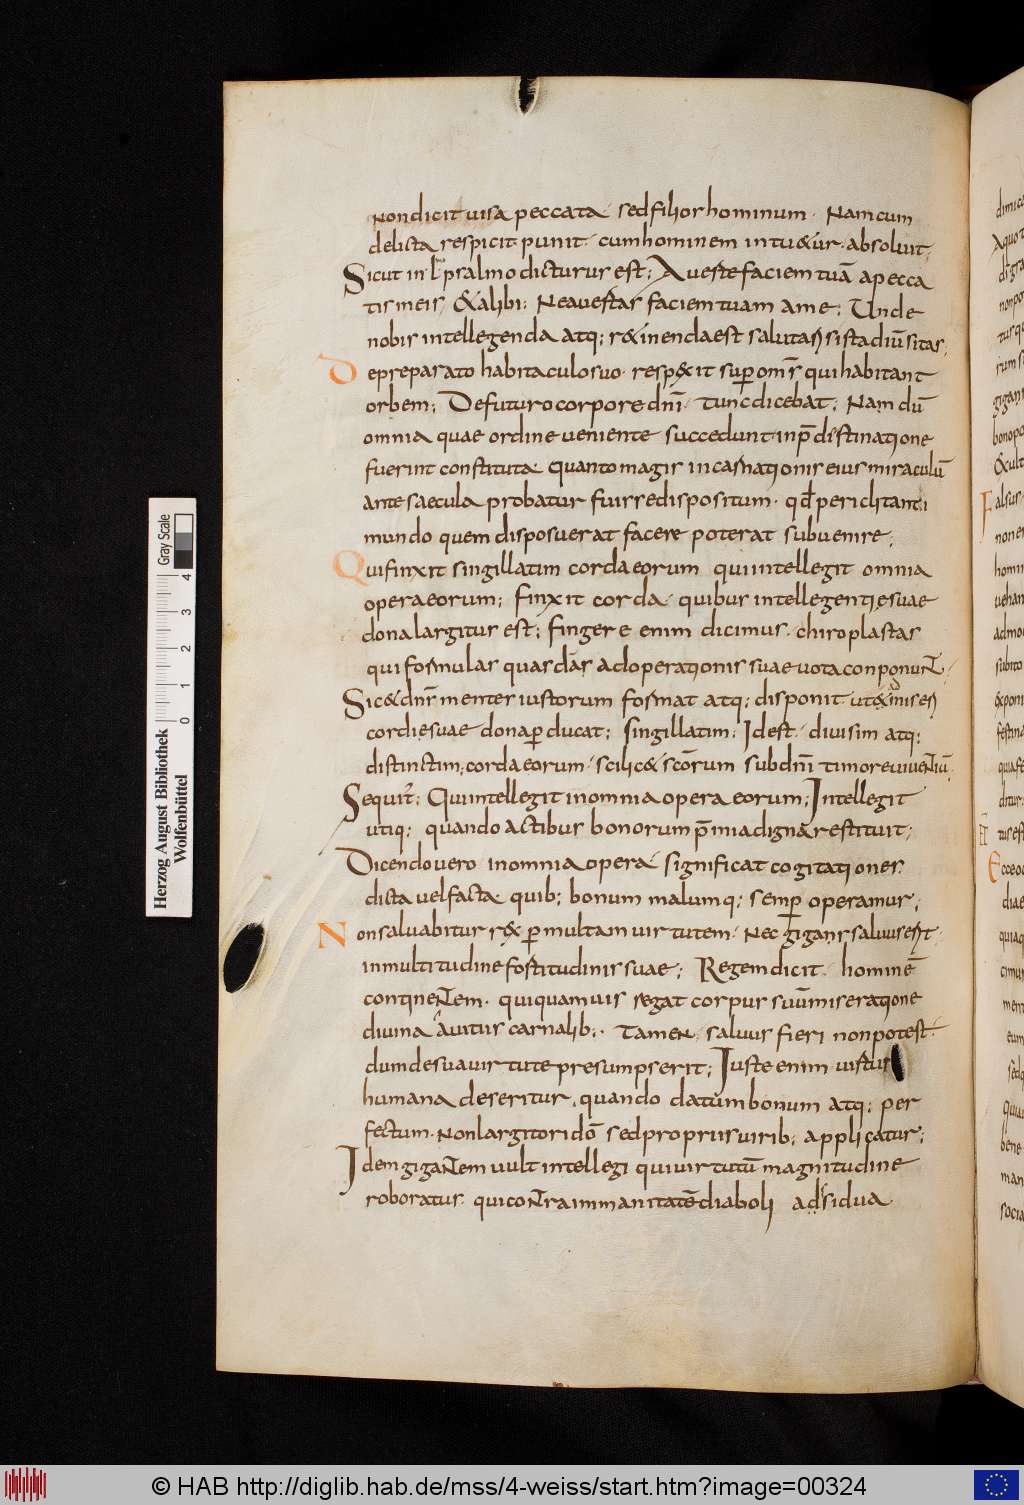 Non dicit uisa peccata· sed filios hominum· Nam cum
delicta respicit punit· cum hominem intu&ur· absoluit;
Sicut in l psalmo dicturus est; Auerte faciem tuā a pecca
tis meis· & alibi; Ne auertas faciem tuam a me; Unde
nobis intellegenda atq; r&inenda est salutaris ista diuersitas;
De preparato habitaculo suo· resp&xit sup omnes qui habitant
orbem; De futuro corpore dnī· tunc dicebat; Nam dū
omnia quae ordine ueniente succedunt in p̄destinatione
fuerint constituta quanto magis incarnationis eius miraculū
ante saecula probatur fuisse dispositum· qd periclitanti
mundo quem disposuerat facere poterat subuenire;
Qui finxit singillatim corda eorum qui intellegit omnia
opera eorum; Finxit corda· quibus intellegentię suae
dona largitus est; Fingere enim dicimus· chiroplastas
qui formulas quasdā ad operationis suae uota conponunt;
Sic & dn̄s mentes iustorum format atq; disponit ut
cordi esuae dona pducat; singillatim; Id est· diuisim atq;
distinctim; corda eorum· scilic& scōrum sub dnī timore uiuentiū;
Sequit̄; Qui intellegit in omnia opera eorum; Intellegit
utiq; quando actibus bonorum p̄mia digna restituit;
Dicendo uero in omnia opera significat cogitationes
dicta uel facta quib; bonum malumq; semp operamur;
Non saluabitur r&x p multam uirtutem· Nec gigans saluus erit
in multitudine fortitudinis suae; Regem dicit· hominē
continentem· qui quamuis regat corpus suū miseratione
diuina a uitiis carnalib;· Tamen saluus fieri non potest·
dum de sua uirtute presumpserit; Iuste enim uirtus
humana deseritur· quando datum bonum atq; per
fectum· Non largitori dō sed propriis uirib; applicatur;
Idem gigantem uult intellegi qui uirtutū magnitudine
roboratur· qui contra immanitatē diaboli adsidua
Herzog August Bibliothek
Wolfenbüttel
0 1 2 3 4
Gray Scale
© HAB http://diglib.hab.de/mss/4-weiss/start.htm?image=00324